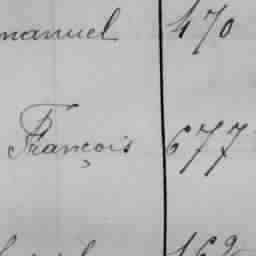 manuel 470
François 677
169